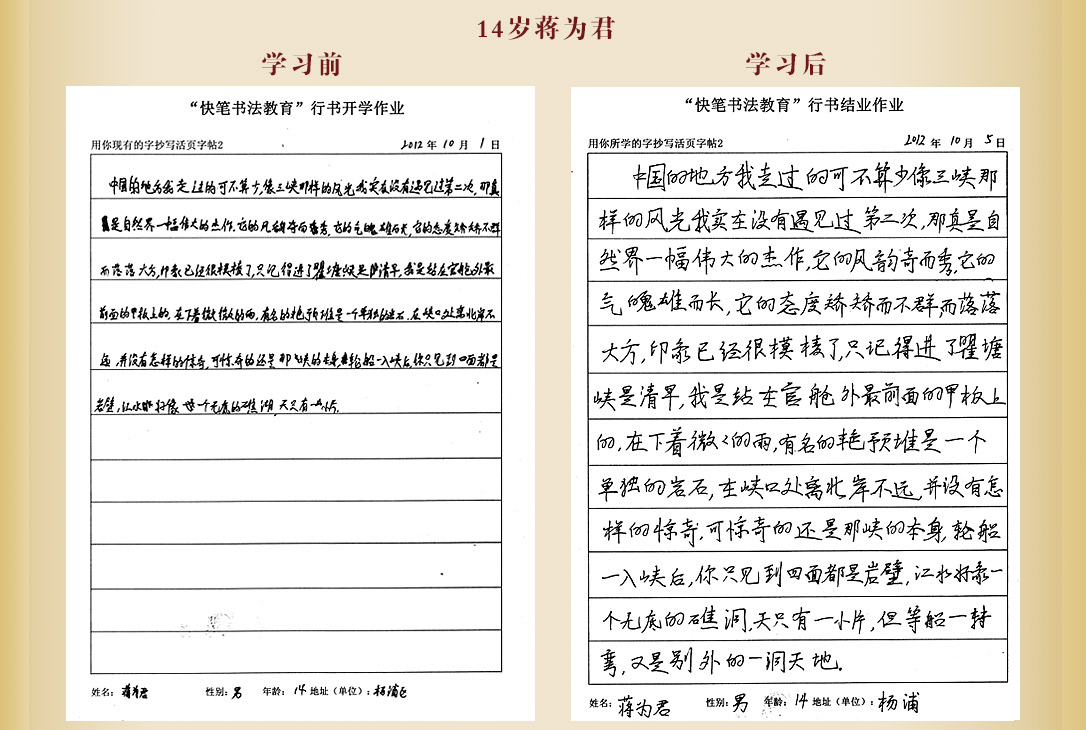 14岁蒋为君
学习前
学习后
“快笔书法教育”行书开学作业
用你现有的字抄写活页字帖2 2012 年 10 月 1 日
中国的地方我走过的可不算少,像三峡那样的风光我实在没有遇见过第二次,那真
是自然界一幅伟大的杰作,它的风韵奇而秀,它的气魄雄而长,它的态度矫矫不群
而落落大方,印象已经很模棱了,只记得进了瞿塘峡是清早,我是站在官舱外最
前面的甲板上的,在下着微微的雨,有名的艳预堆是一个单独的岩石,在峡口处离北岸不
远,并没有怎样的惊奇,可惊奇的还是那峡的本身,轮船一入峡后,你只见到四面都是
岩壁,江水好像一个无底的礁湖,天只有一小片,
姓名:蒋为君 性别:男 年龄:14 地址(单位):杨浦区
“快笔书法教育”行书结业作业
用你所学的字抄写活页字帖2 2012 年 10 月 5 日
中国的地方我走过的可不算少像三峡那
样的风光我实在没有遇见过第二次,那真是自
然界一幅伟大的杰作,它的风韵奇而秀,它的
气魄雄而长,它的态度矫矫而不群,而落落
大方,印象已经很模棱了,只记得进了瞿塘
峡是清早,我是站在官舱外最前面的甲板上
的,在下着微々的雨,有名的艳预堆是一个
单独的岩石,在峡口处离北岸不远,并没有怎
样的惊奇,可惊奇的还是那峡的本身,轮船
一入峡后,你只见到四面都是岩壁,江水好象一
个无底的礁洞,天只有一小片,但等船一转
弯,又是别外的一洞天地.
姓名:蒋为君 性别:男 年龄:14 地址(单位):杨浦